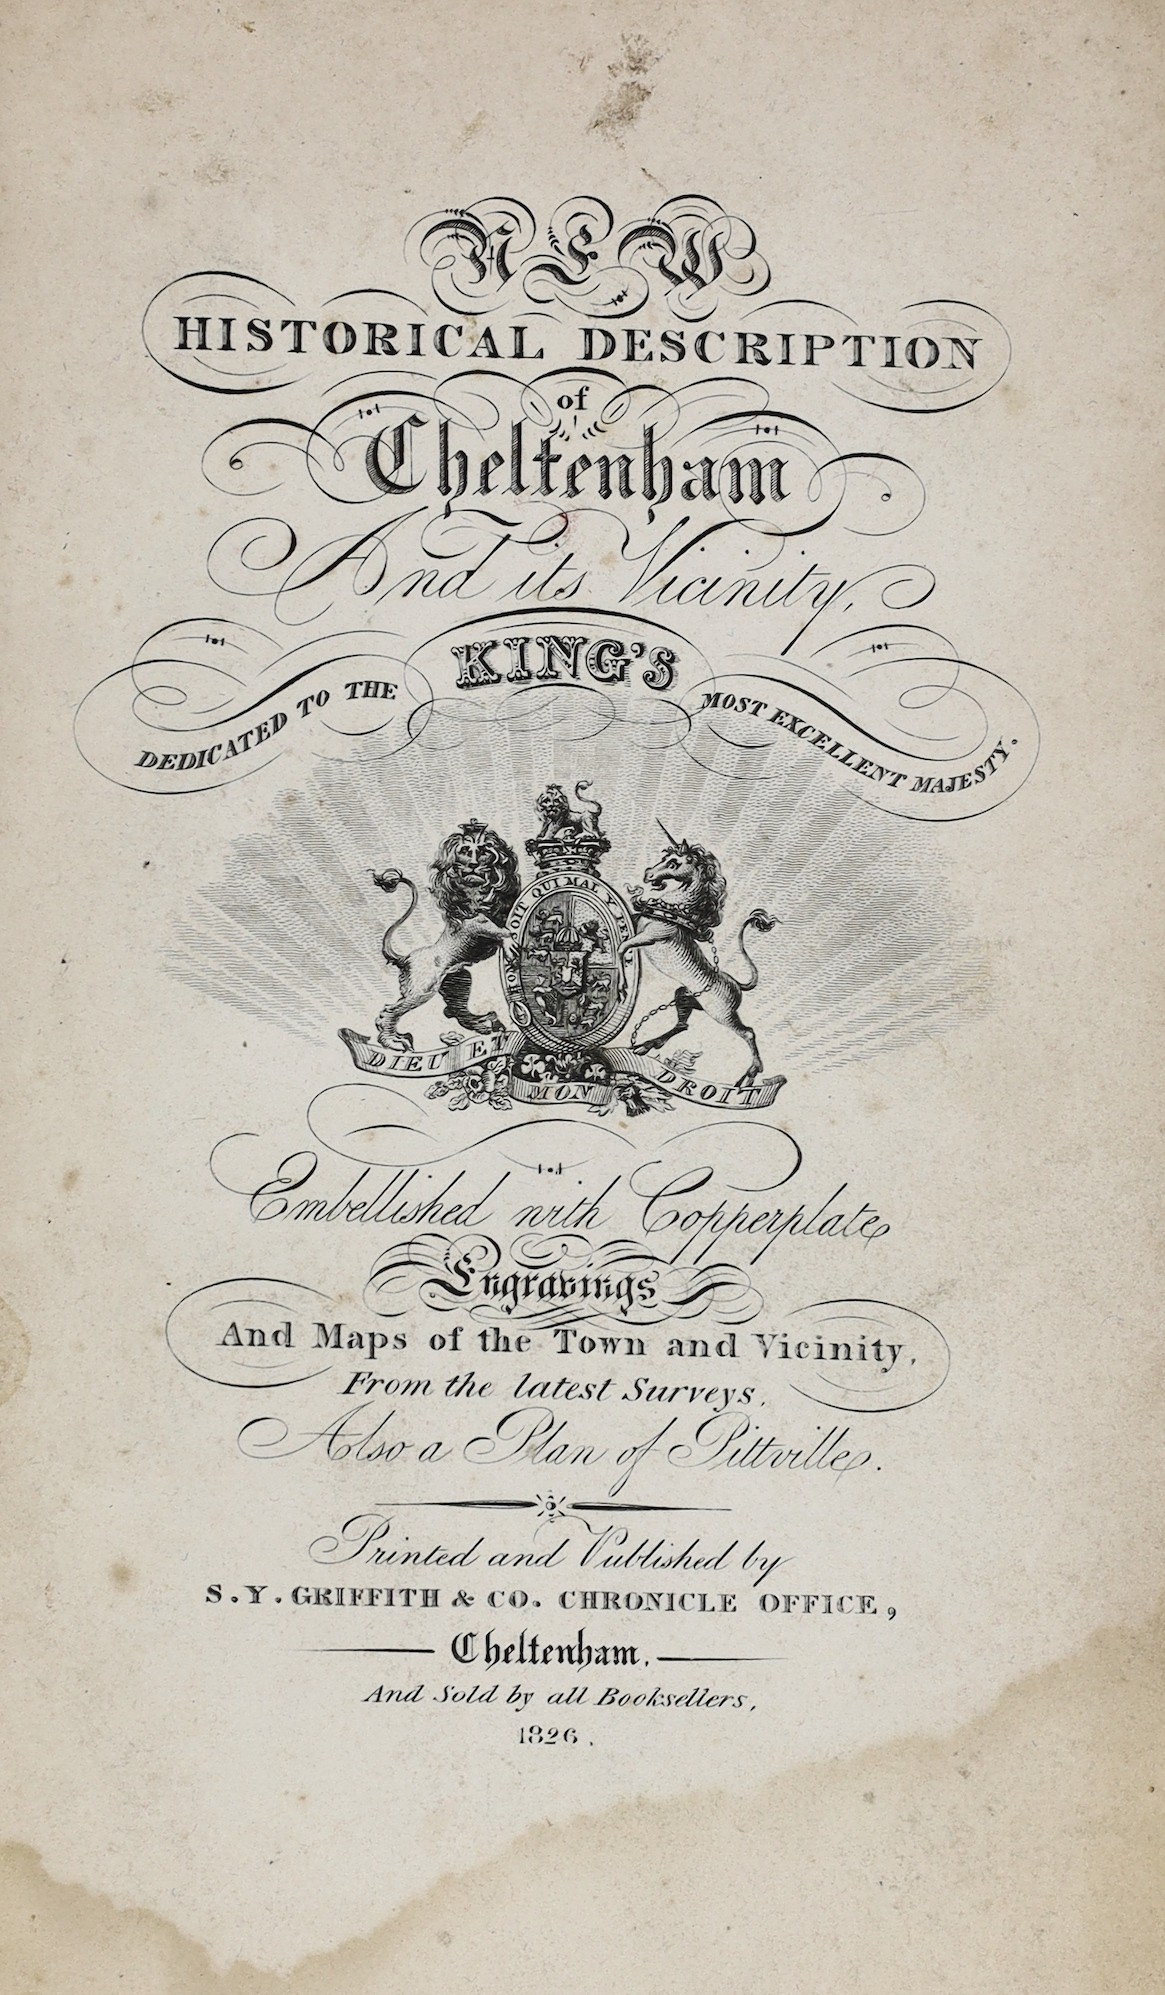 NEW
HISTORICAL DESCRIPTION
of
Cheltenham
And its Vicinity,
DEDICATED TO THE KING'S MOST EXCELLENT MAJESTY.
HONI SOIT QUI MAL Y PENSE
DIEU ET MON DROIT
Embellished with Copperplate
Engravings
And Maps of the Town and Vicinity,
From the latest Surveys,
Also a Plan of Pittville.
Printed and Published by
S. Y. GRIFFITH & CO. CHRONICLE OFFICE,
Cheltenham.
And Sold by all Booksellers,
1826.